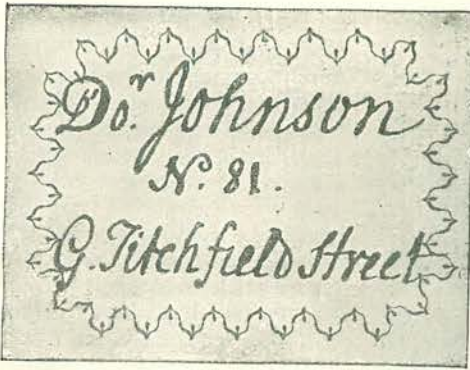 Do.r Johnson
No. 81.
G. Titchfield Street